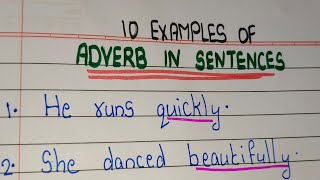 10 EXAMPLES OF
ADVERB IN SENTENCES
1. He runs quickly.
2. She danced beautifully.